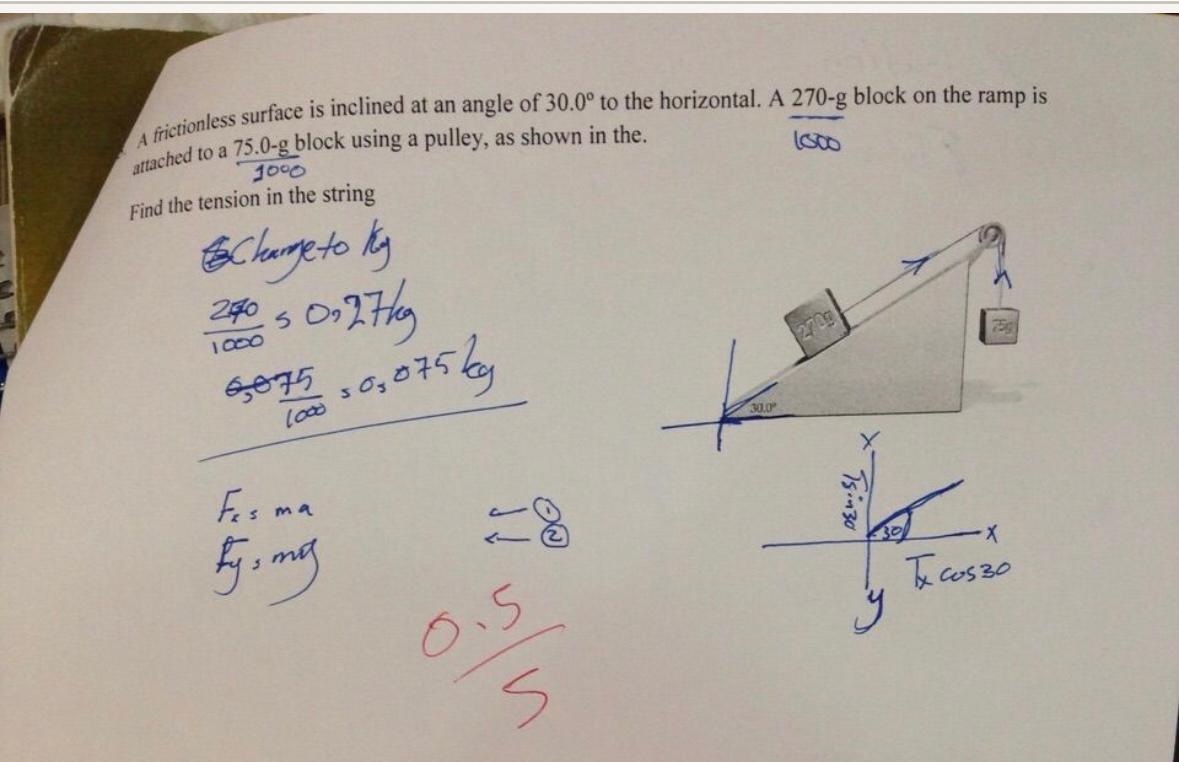 A frictionless surface is inclined at an angle of 30.0° to the horizontal. A 270-g block on the ramp is
1000
attached to a 75.0-g block using a pulley, as shown in the.
1000
Find the tension in the string
Change to kg
270/1000 = 0,27kg
0,075
75/1000 = 0,075 kg
270g
75g
30.0°
Fx = ma ← ①
Fy = mg ← ②
x
Tsin30
30
x
Tx cos30
y
0.5/5